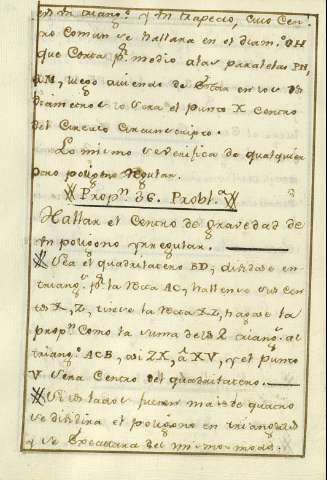 en un triang.º y un trapecio, cuio Cen-
tro Comun se hallara en el diam.º OH
que Corta p.r medio a las paralelas PN,
luego aviendo de estar en los ds
diametros sera el punto X Centro
del Circulo Circunscripto.
Lo mismo se verifica de qualquier
otro poligono regular.
Prop.n 36. Probl.a
Hallar el Centro de gravedad de
un poligono yrregular.
Sea el quadrilatero BD, dividase en
triang.s p.r la recta AC, hallense sus cen-
tros X, Z, tirese la recta XZ, hagase la
prop.n Como la suma de ls 2 triang.s al
triang.º ACB, asi ZX, â XV, y el punto
V sera Centro del quadrilatero.
Si ls lados fueren mas de quatro
se dividira el poligono en triangulos
y se executara del mismo modo.